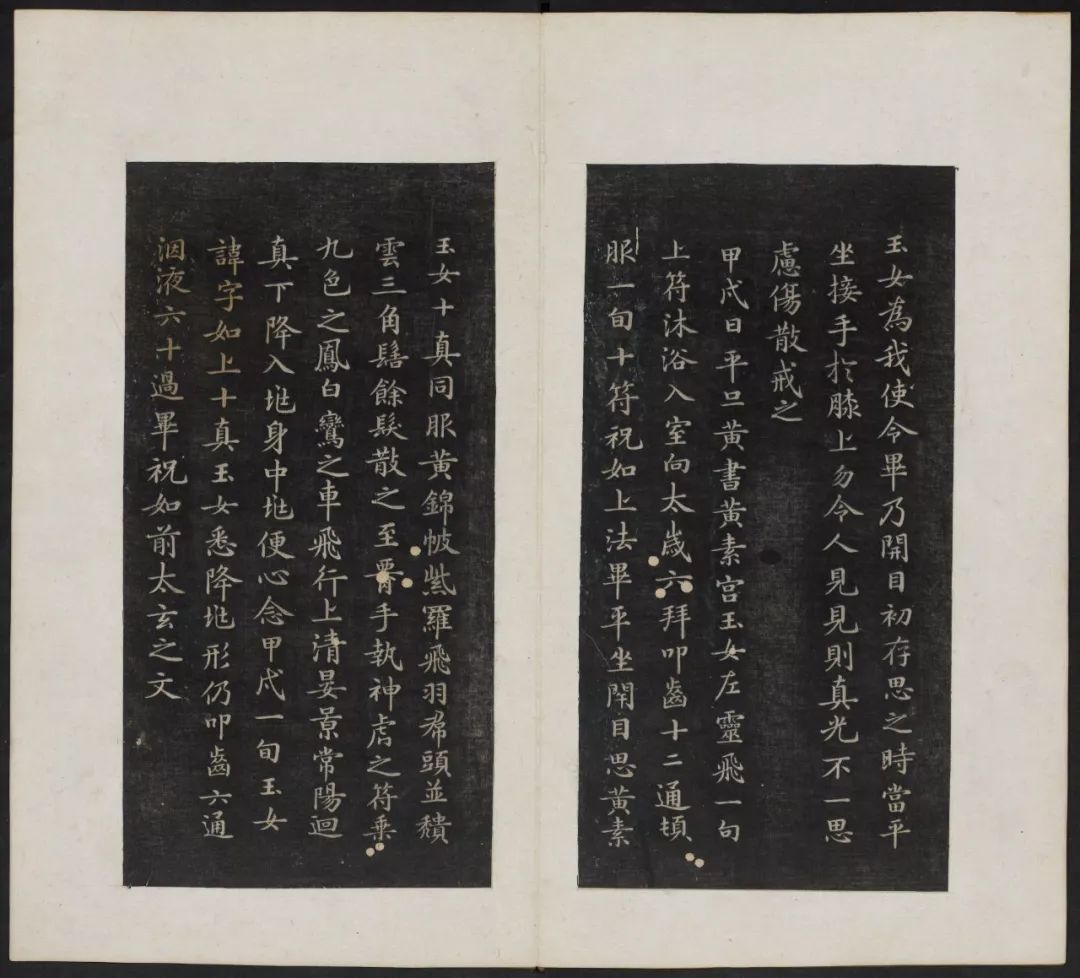 玉女為我使令畢乃開目初存思之時當平
坐接手於膝上勿令人見見則真光不一思
慮傷散戒之
甲戌日平旦黃書黃素宮玉女左靈飛一旬
上符沐浴入室向太歲六拜叩齒十二通頓
服一旬十符祝如上法畢平坐閉目思黃素
玉女十真同服黃錦帔紫羅飛羽帬頭並穨
雲三角髻餘髮散之至腰手執神虎之符乘
九色之鳳白鸞之車飛行上清晏景常陽迴
真下降入兆身中兆便心念甲戌一旬玉女
諱字如上十真玉女悉降兆形仍叩齒六通
咽液六十過畢祝如前太玄之文